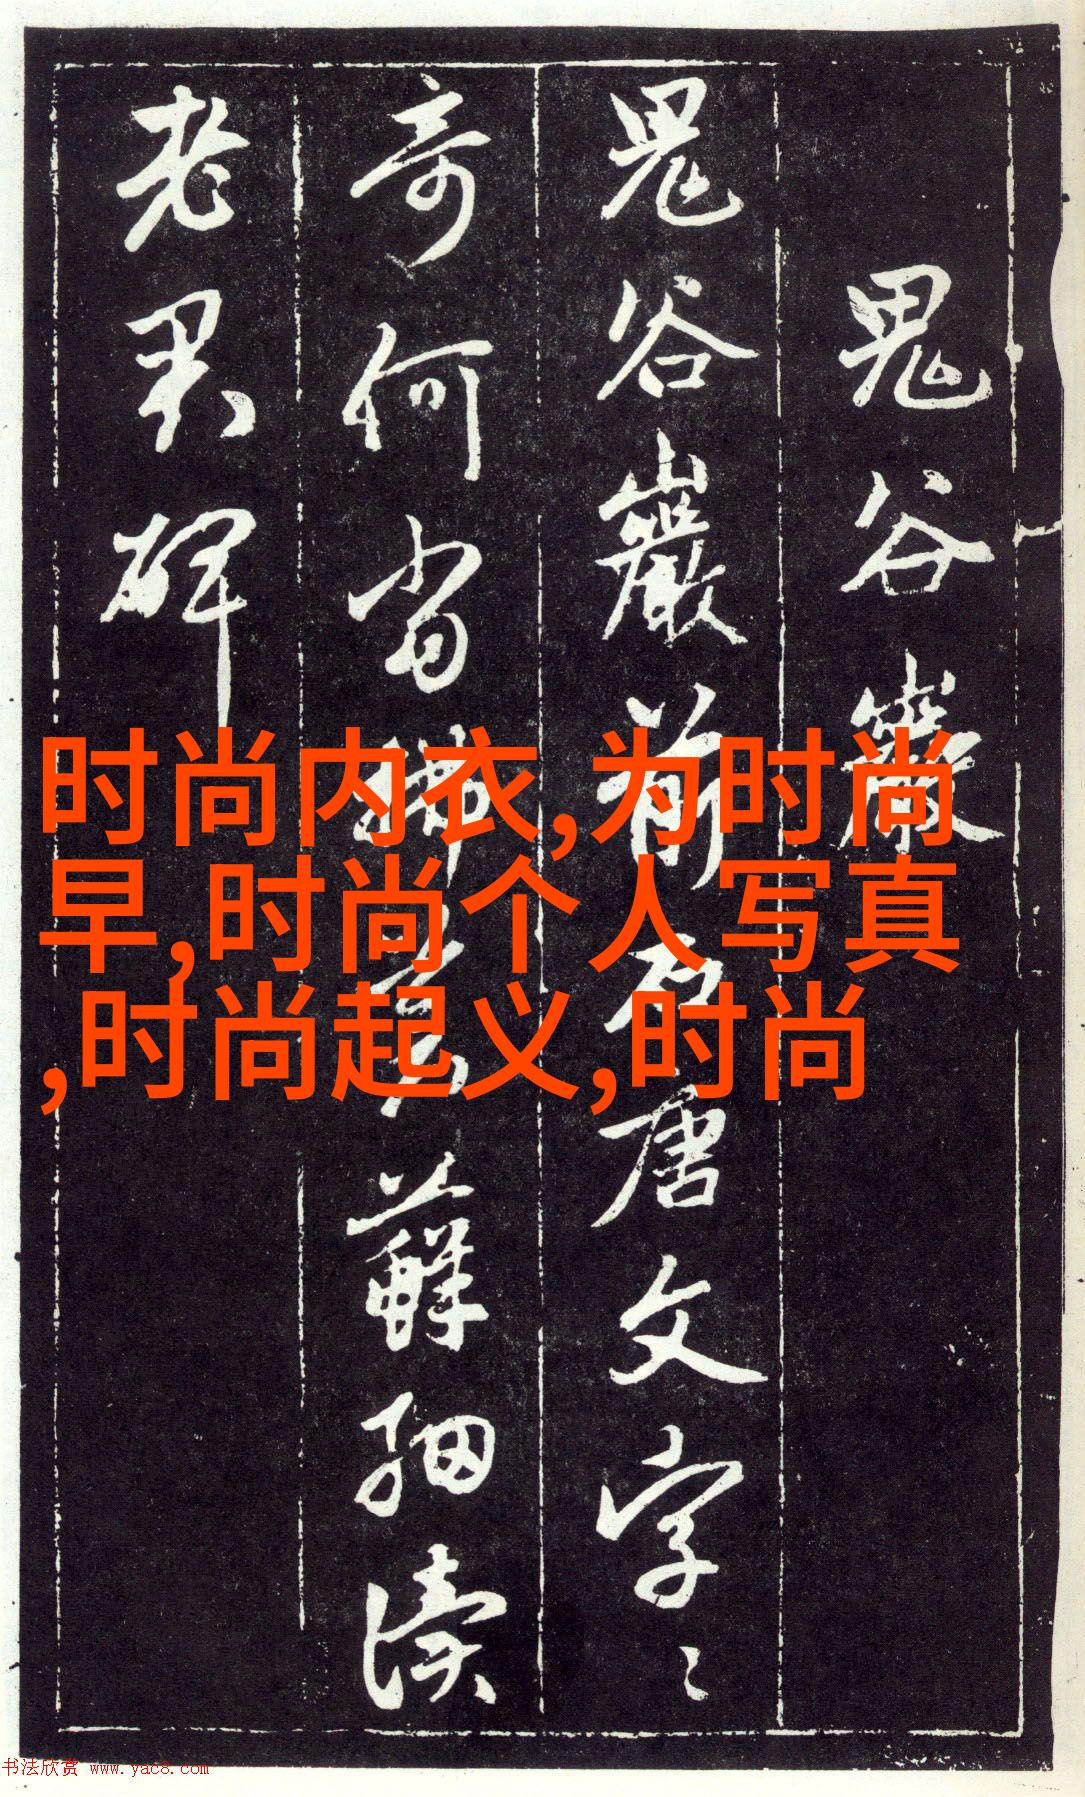 鬼谷巖
鬼谷巖前石唐文字〻
奇何當掃去蘚細讀
老君碑
时尚内衣,为时尚
早,时尚个人写真
,时尚起义,时尚
书法欣赏 www.yac8.com